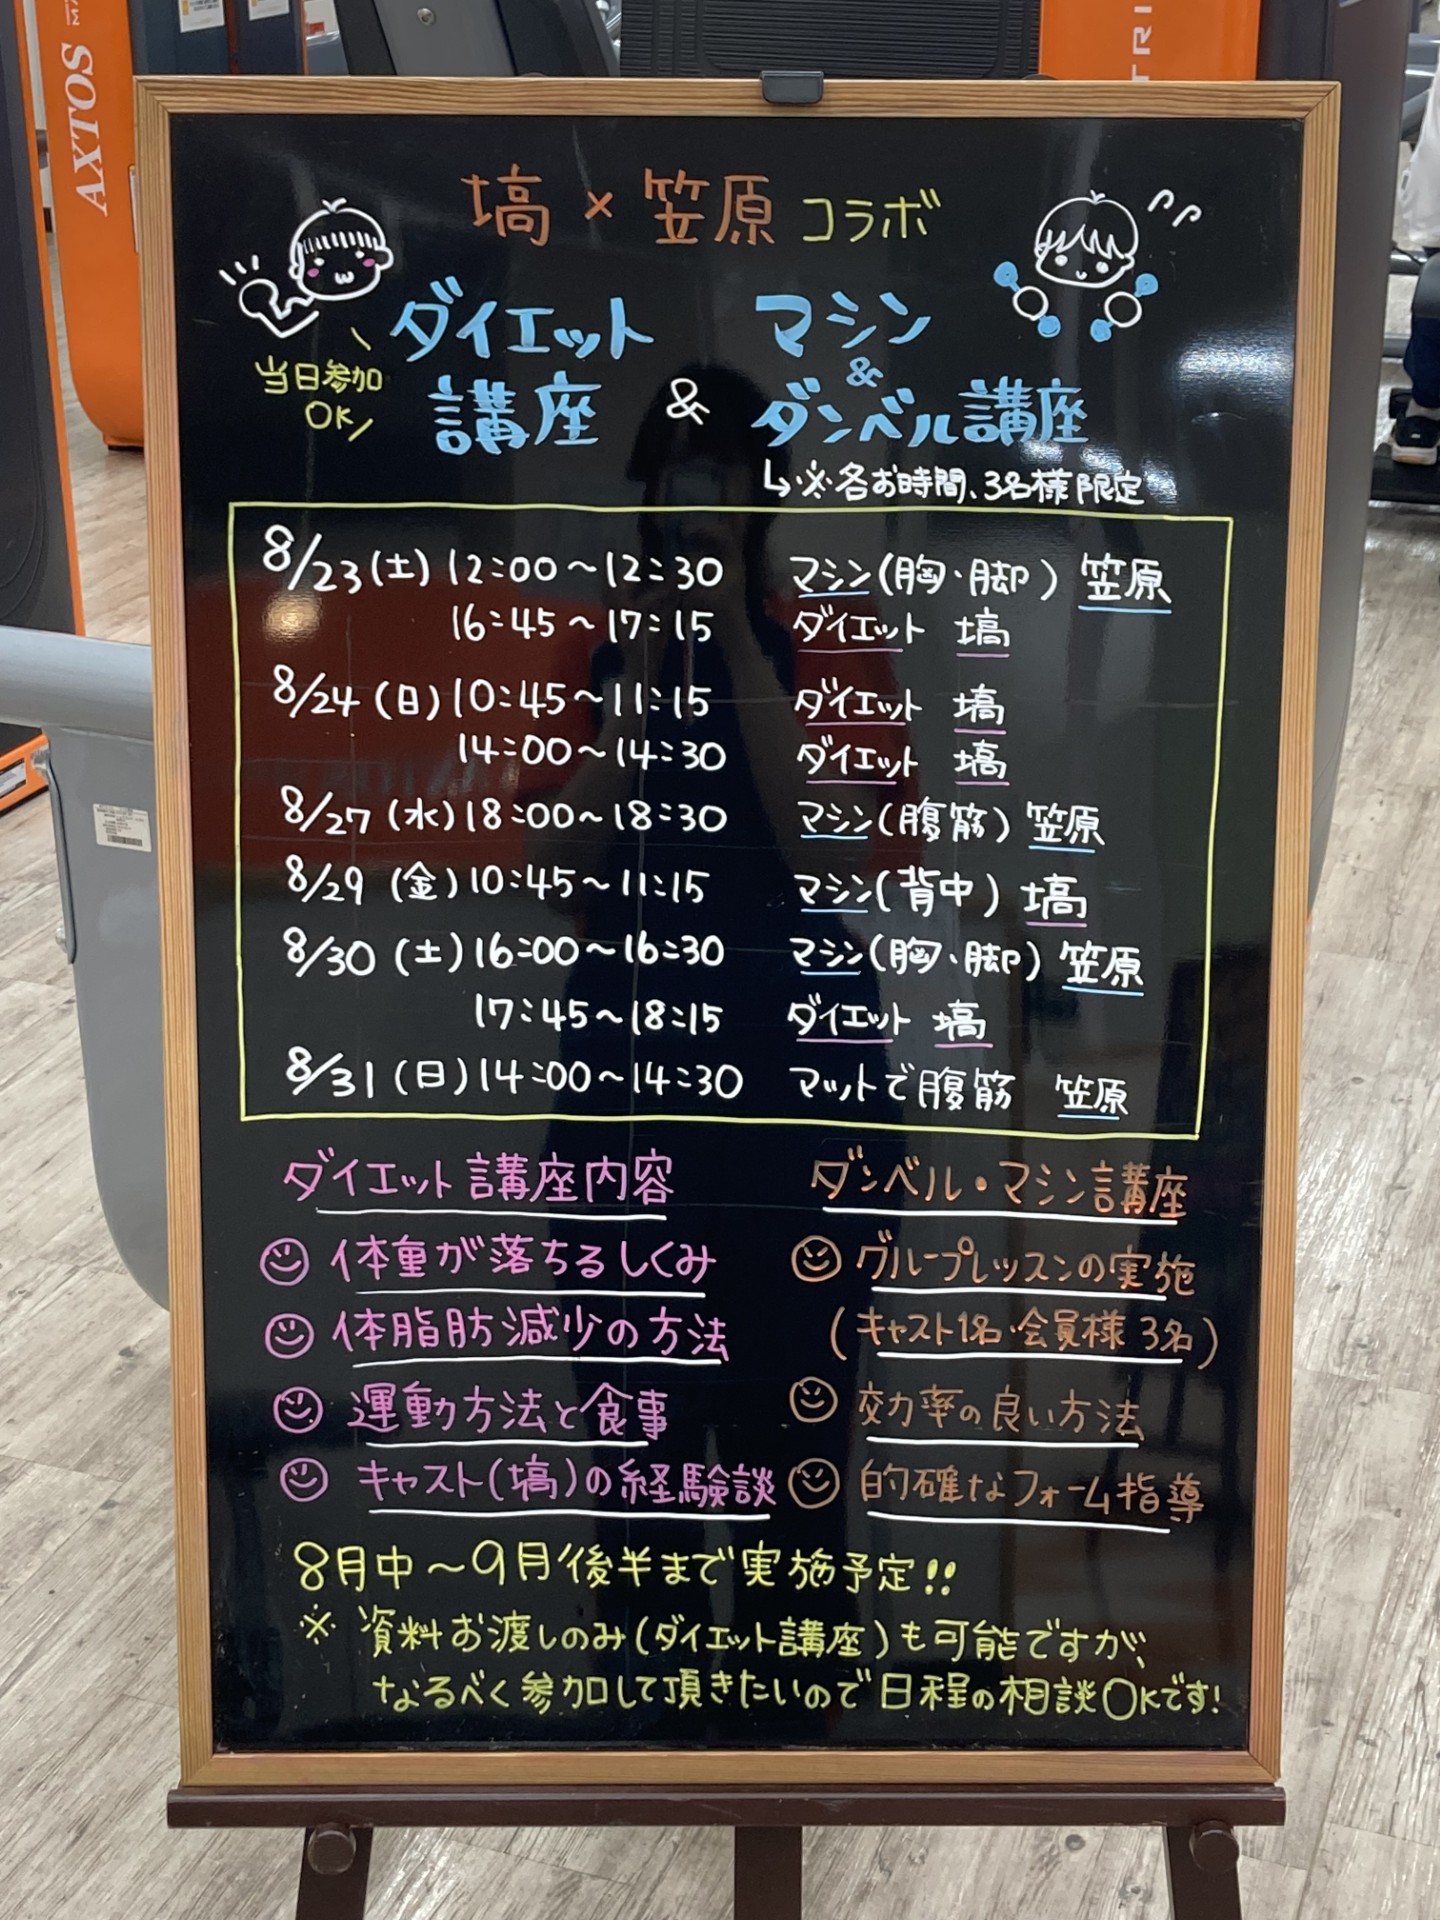 AXTOS
塙×笠原コラボ
ダイエット講座
&
マシン&ダンベル講座
当日参加OK
↳※各お時間、3名様限定
8/23(土) 12:00～12:30 マシン(胸・脚) 笠原
16:45～17:15 ダイエット 塙
8/24(日) 10:45～11:15 ダイエット 塙
14:00～14:30 ダイエット 塙
8/27(水) 18:00～18:30 マシン(腹筋) 笠原
8/29(金) 10:45～11:15 マシン(背中) 塙
8/30(土) 16:00～16:30 マシン(胸・脚) 笠原
17:45～18:15 ダイエット 塙
8/31(日) 14:00～14:30 マットで腹筋 笠原
ダイエット講座内容
体重が落ちるしくみ
体脂肪減少の方法
運動方法と食事
キャスト(塙)の経験談
ダンベル・マシン講座
グループレッスンの実施
(キャスト1名・会員様3名)
効率の良い方法
的確なフォーム指導
8月中～9月後半まで実施予定!!
※資料お渡しのみ(ダイエット講座)も可能ですが、
なるべく参加して頂きたいので日程の相談OKです!